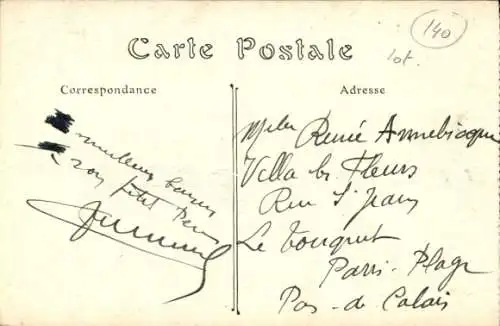 140
lot.
Carte Postale
Correspondance
Adresse
meilleurs baisers
ton petit
Renée
Villa les Fleurs
Rue St Jean
Le Touquet
Paris-Plage
Pas-de Calais